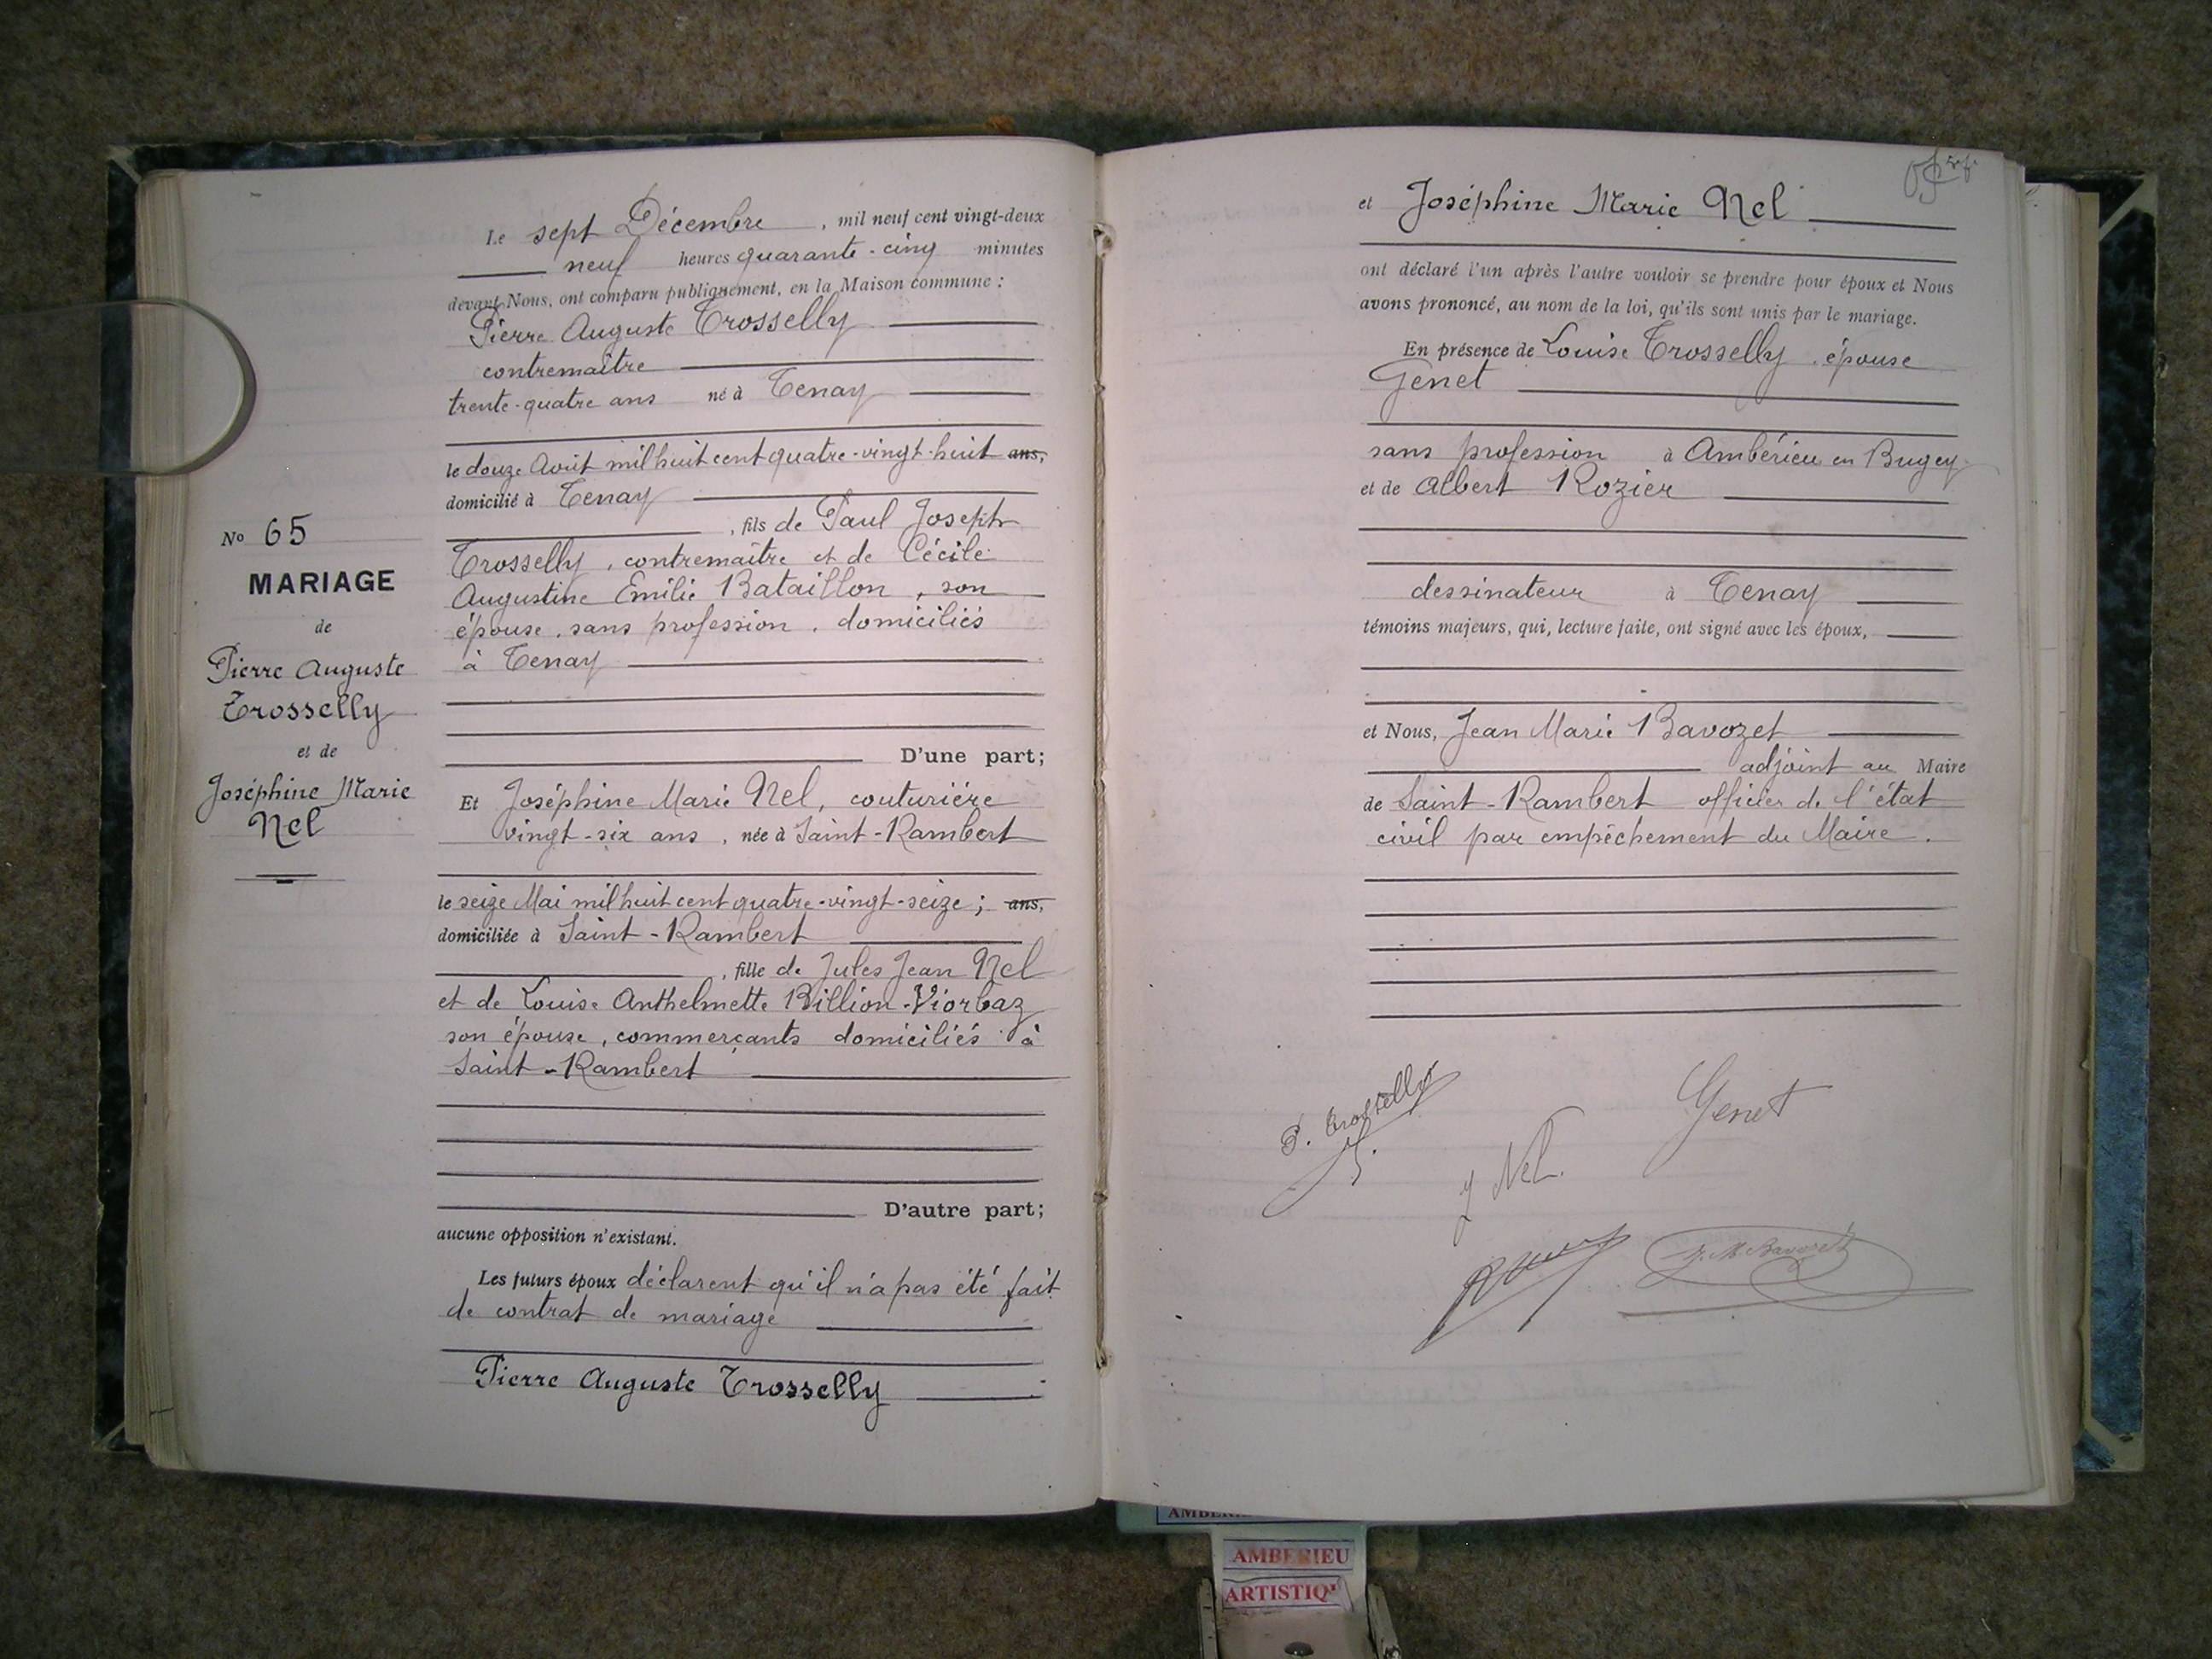 Le sept Décembre, mil neuf cent vingt-deux
neuf heures quarante-cinq minutes
devant Nous, ont comparu publiquement, en la Maison commune :
Pierre Auguste Trosselly
contremaître
trente-quatre ans né à Tenay
le douze Août mil huit cent quatre-vingt-huit ans,
domicilié à Tenay
, fils de Paul Joseph
Trosselly, contremaître et de Cécile
Augustine Emilie Bataillon, son
épouse, sans profession, domiciliés
à Tenay
D'une part;
Et Joséphine Marie Nel, couturière
vingt-six ans, née à Saint-Rambert
le seize Mai mil huit cent quatre-vingt-seize; ans,
domiciliée à Saint-Rambert
, fille de Jules Jean Nel
et de Louise Anthelmette Billion-Viorbaz
son épouse, commerçants domiciliés à
Saint-Rambert
D'autre part;
aucune opposition n'existant.
Les futurs époux déclarent qu'il n'a pas été fait
de contrat de mariage
Pierre Auguste Trosselly
No 65
MARIAGE
de
Pierre Auguste
Trosselly
et de
Joséphine Marie
Nel
et Joséphine Marie Nel
ont déclaré l'un après l'autre vouloir se prendre pour époux et Nous
avons prononcé, au nom de la loi, qu'ils sont unis par le mariage.
En présence de Louise Trosselly épouse
Genet
sans profession à Ambérieu en Bugey
et de Albert Rozier
dessinateur à Tenay
témoins majeurs, qui, lecture faite, ont signé avec les époux,
et Nous, Jean Marie Bavozet
adjoint au Maire
de Saint-Rambert officier de l'état
civil par empêchement du Maire.
P. Trosselly
Genet
J Nel.
J. M. Bavozet
AMBERIEU
ARTISTIQ